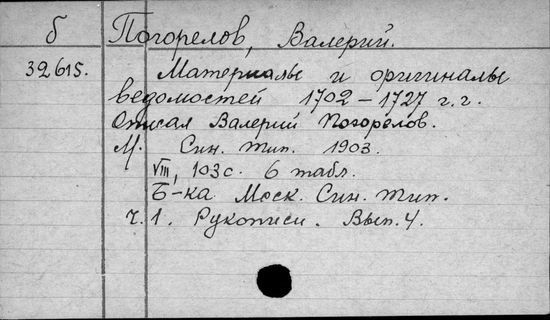 б Погорелов, Валерий.
32615. Материалы и оригиналы
ведомостей 1702 – 1727 г.г.
Описал Валерий Погорелов.
М. Син. тип. 1903.
VIII, 103 с. 6 табл.
Б-ка Моск. Син. тип.
ч. 1. Рукописи. Вып. 4.